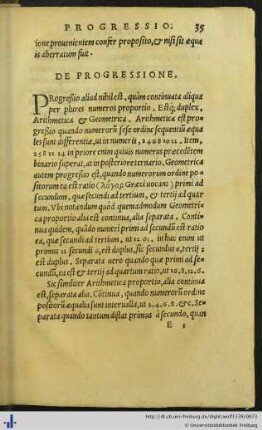 PROGRESSIO. 35
tione prouenientem confer proposito, & nisi sit æqua
is aberratum fuit.
DE PROGRESSIONE.
PRogreßio aliud nihil est, quàm continuata aliqua
per plures numeros proportio. Estq; duplex,
Arithmetica & Geometrica. Arithmetica est pro
greßio quando numerorũ sese ordine sequentiũ æqua
les sunt differentiæ, ut in numeris, 2 4 6 8 10 12. Item,
2 5 8 11 14 in priore enim quiuis numerus præcedẽtem
binario superat, at in posteriore ternario. Geometrica
autem progreßio est, quando numerorum ordine po
sitorum ea est ratio (λόγον Græci uocant) primi ad
secundum, quæ secundi ad tertium, & tertij ad quar
tum. Vbi notandum quòd quemadmodum Geometri
ca proportio alia est continua, alia separata. Conti
nua quidem, quãdo numeri primi ad secundũ est ratio
ea, quæ secundi ad tertium, ut 12 6 3. in hac enim ut
primus 12 secundi 6, est duplus, sic secundus 6, tertij 3
est duplus. Separata uero quando quæ primi ad se
cundũ, ea est & tertij ad quartum ratio, ut 10.8.12.6.
Sic similiter Arithmetica proportio, alia continua
est, separata alia. Cõtinua, quando numerorũ ordine
positorũ æqualia sunt interualla, ut 2.4.6.8. &c. Se
parata quando tantum distat primus à secundo, quan
E 3
http://dl.ub.uni-freiburg.de/diglit/wolf1539/0073
© Universitätsbibliothek Freiburg